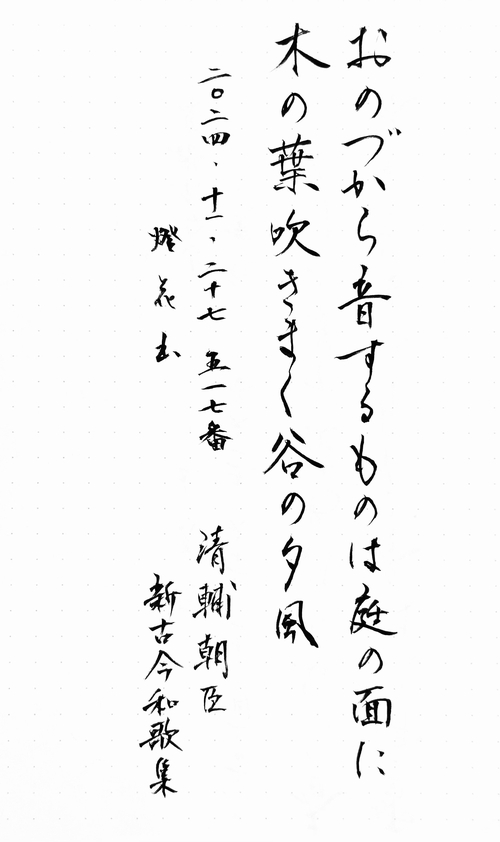 おのづから音するものは庭の面に
木の葉吹きまく谷の夕風
二〇二四、十一、二十七 五一七番 清輔朝臣
燈花 新古今和歌集